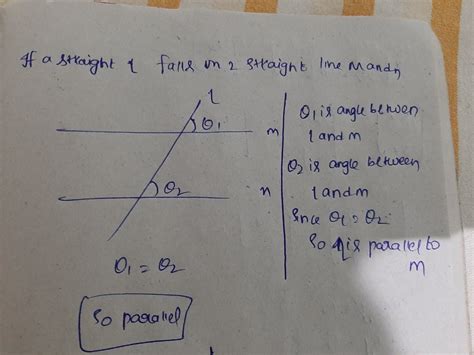 If a straight l falls on 2 straight line m and n
l
θ1
m
θ2
n
θ1 = θ2
So parallel
θ1 is angle between
l and m
θ2 is angle between
l and m
Since θ1 = θ2
So is parallel to
m